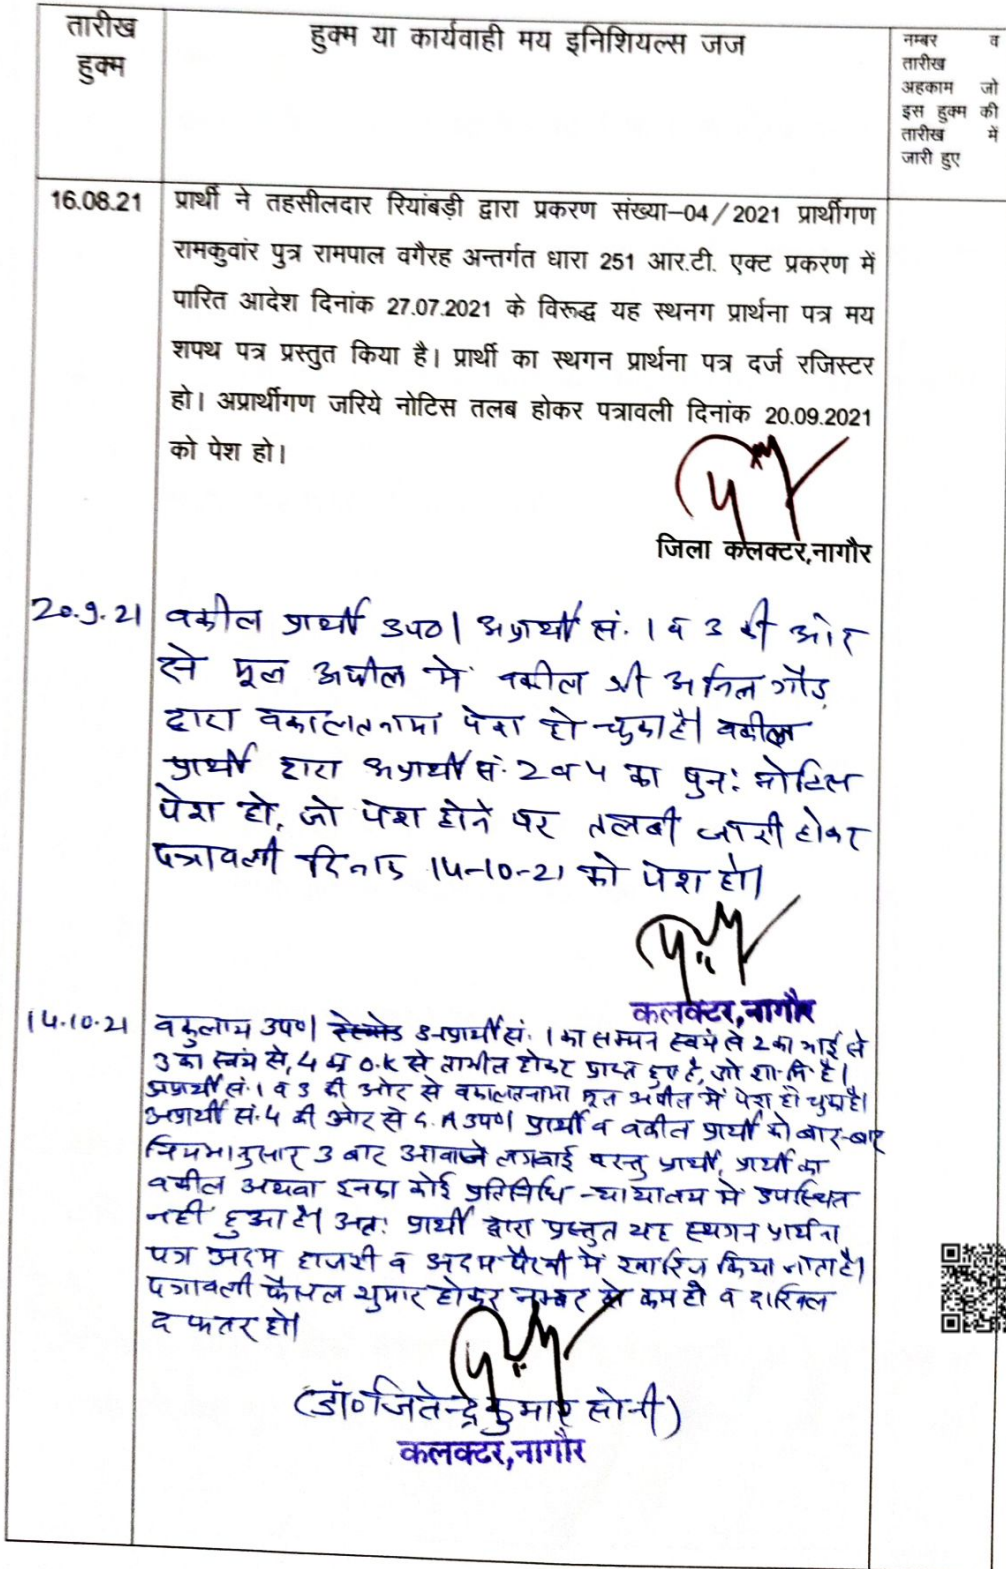 तारीख
हुक्म
हुक्म या कार्यवाही मय इनिशियल्स जज
नम्बर व
तारीख
अहकाम जो
इस हुक्म की
तारीख में
जारी हुए
16.08.21
प्रार्थी ने तहसीलदार रियांबड़ी द्वारा प्रकरण संख्या–04/2021 प्रार्थीगण
रामकुवांर पुत्र रामपाल वगैरह अन्तर्गत धारा 251 आर.टी. एक्ट प्रकरण में
पारित आदेश दिनांक 27.07.2021 के विरूद्ध यह स्थनग प्रार्थना पत्र मय
शपथ पत्र प्रस्तुत किया है। प्रार्थी का स्थगन प्रार्थना पत्र दर्ज रजिस्टर
हो। अप्रार्थीगण जरिये नोटिस तलब होकर पत्रावली दिनांक 20.09.2021
को पेश हो।
जिला कलक्टर,नागौर
20.9.21
वकील प्रार्थी उप०। अप्रार्थी सं. 1 व 3 की ओर
से मूल अपील में वकील श्री अनिल गौड़
द्वारा वकालतनामा पेश हो चुका है। वकील
प्रार्थी द्वारा अप्रार्थी सं. 2 व 4 का पुन: नोटिस
पेश हो, जो पेश होने पर तलबी जारी होकर
पत्रावली दिनांक 14-10-21 को पेश हो।
कलक्टर,नागौर
14.10.21
वकुलाय उप०। अप्रार्थी सं. 1 का सम्मन स्वयं से 2 का भाई से
3 का स्वयं से, 4 का O.K से तामील होकर प्राप्त हुए है, जो शा.मि है।
अप्रार्थी सं. 1 व 3 की ओर से वकालतनामा मूल अपील में पेश हो चुका है।
अप्रार्थी सं. 4 की ओर से G.A उप०। प्रार्थी व वकील प्रार्थी को बार-बार
नियमानुसार 3 बार आवाजे लगवाई परन्तु प्रार्थी, प्रार्थी का
वकील अथवा इनका कोई प्रतिनिधि न्यायालय में उपस्थित
नहीं हुआ है। अत: प्रार्थी द्वारा प्रस्तुत यह स्थगन प्रार्थना
पत्र अदम हाजरी व अदम पैरवी में खारिज किया जाता है।
पत्रावली फैसल शुमार होकर नम्बर से कम हो व दाखिल
दफतर हो।
(डॉ० जितेन्द्र कुमार सोनी)
कलक्टर,नागौर